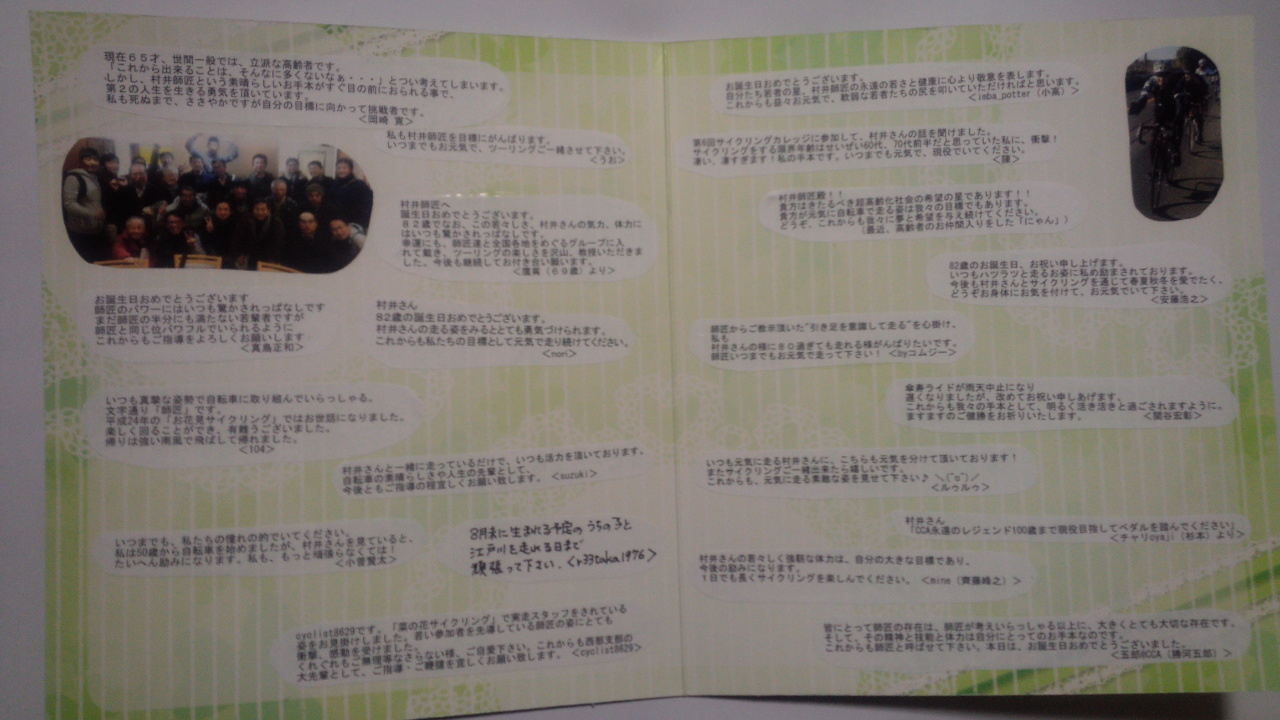 現在65才、世間一般では、立派な高齢者です。
「これから出来ることは、そんなに多くないなぁ・・・」とつい考えてしまいます。
しかし、村井師匠という素晴らしいお手本がすぐ目の前におられる事で、
第2の人生を生きる勇気を頂いています。
私も死ぬまで、ささやかですが自分の目標に向かって挑戦者です。
<岡崎 寛>
私も村井師匠を目標にがんばります。
いつまでもお元気で、ツーリングご一緒させて下さい。
<うお>
村井師匠へ
誕生日おめでとうございます。
82歳でなお、この若々しさ、村井さんの気力、体力に
はいつも驚かされっぱなしです。
幸運にも、師匠達と全国各地をめぐるグループに入
れて戴き、ツーリングの楽しさを沢山、教授いただきま
した。今後も継続してお付き合い願います。
(69歳)より>
お誕生日おめでとうございます
師匠のパワーにはいつも驚かされっぱなしです
まだ師匠の半分にも満たない若輩者ですが
師匠と同じ位パワフルでいられるように
これからもご指導をよろしくお願いします
<真島正和>
村井さん
82歳の誕生日おめでとうございます。
村井さんの走る姿をみるととても勇気づけられます。
これからも私たちの目標として元気で走り続けてください。
<nori>
いつも真摯な姿勢で自転車に取り組んでいらっしゃる。
文字通り「師匠」です。
平成24年の「お花見サイクリング」ではお世話になりました。
楽しく回ることができ、有難うございました。
帰りは強い南風で飛ばして帰れました。
<104>
村井さんと一緒に走っているだけで、いつも活力を頂いております。
自転車の素晴らしさや人生の先輩として、
今後ともご指導の程宜しくお願い致します。 <suzuki>
いつまでも、私たちの憧れの的でいてください。
私は50歳から自転車を始めましたが、村井さんを見ていると、
たいへん励みになります。私も、もっと頑張らなくては!
<小菅賢太>
8月末に生まれる予定のうちの子と
江戸川を走れる日まで
頑張って下さい。<r33taka1976>
cyclist8629です。「菜の花サイクリング」で実走スタッフをされている
姿をお見掛けしました。若い参加者を先導している師匠の姿にとても
衝撃、感動を受けました。
くれぐれもご無理等なさらない様、ご自愛下さい。これからも西部支部の
大先輩として、ご指導・ご鞭撻を宜しくお願い致します。 <cyclist8629>
お誕生日おめでとうございます。
自分たち若者の星、村井師匠の永遠の若さと健康に心より敬意を表します。
これからも益々お元気で、軟弱な若者たちの尻を叩いていただければと思います。
<imba_potter(小高)>
第6回サイクリングカレッジに参加して、村井さんの話を聞けました。
サイクリングをする限界年齢はせいぜい60代、70代前半だと思っていた私に、衝撃!
凄い、凄すぎます!私の手本です。いつまでも元気で、現役でいてください。
<陳>
村井師匠殿!!
貴方はきたるべき超高齢化社会の希望の星であります!!
貴方が元気に自転車で走る姿は我々の目標でもあります。
どうぞ、これからも我々に夢と希望を与え続けてください。
(最近、高齢者のお仲間入りをした「にゃん」)
82歳のお誕生日、お祝い申し上げます。
いつもハツラツと走るお姿に私の励まされております。
今後も村井さんとサイクリングを通じて春夏秋冬を愛でたく、
どうぞお身体にお気を付けて、お元気でいて下さい。
<安藤浩之>
師匠からご教示頂いた"引き足を意識して走る"を心掛け、
私も
村井さんの様に80過ぎても走れる様がんばりたいです。
師匠いつまでもお元気で走って下さい! <byコムジー>
傘寿ライドが雨天中止になり
遅くなりましたが、改めてお祝い申しあげます。
これからも我々の手本として、明るく活き活きと過ごされますように。
ますますのご健勝をお祈りいたします。 <関谷宏彰>
いつも元気に走る村井さんに、こちらも元気を分けて頂いております!
またサイクリングご一緒出来たら嬉しいです。
これからも、元気に走る素敵な姿を見せて下さい♪ \(^o^)/
<ルゥルゥ>
村井さん
「CCA永遠のレジェンド100歳まで現役目指してペダルを踏んでください」
<チャリoyaji(杉本)より>
村井さんの若々しく強靭な体力は、自分の大きな目標であり、
今後の励みになります。
1日でも長くサイクリングを楽しんでください。 <mine(齊藤峰之)>
皆にとって師匠の存在は、師匠が考えいらっしゃる以上に、大きくとても大切な存在です。
そして、その精神と技能と体力は自分にとってのお手本なのです。
これからも師匠と呼ばせて下さい。本日は、お誕生日おめでとうございました。
<五郎@CCA(磯河五郎)>